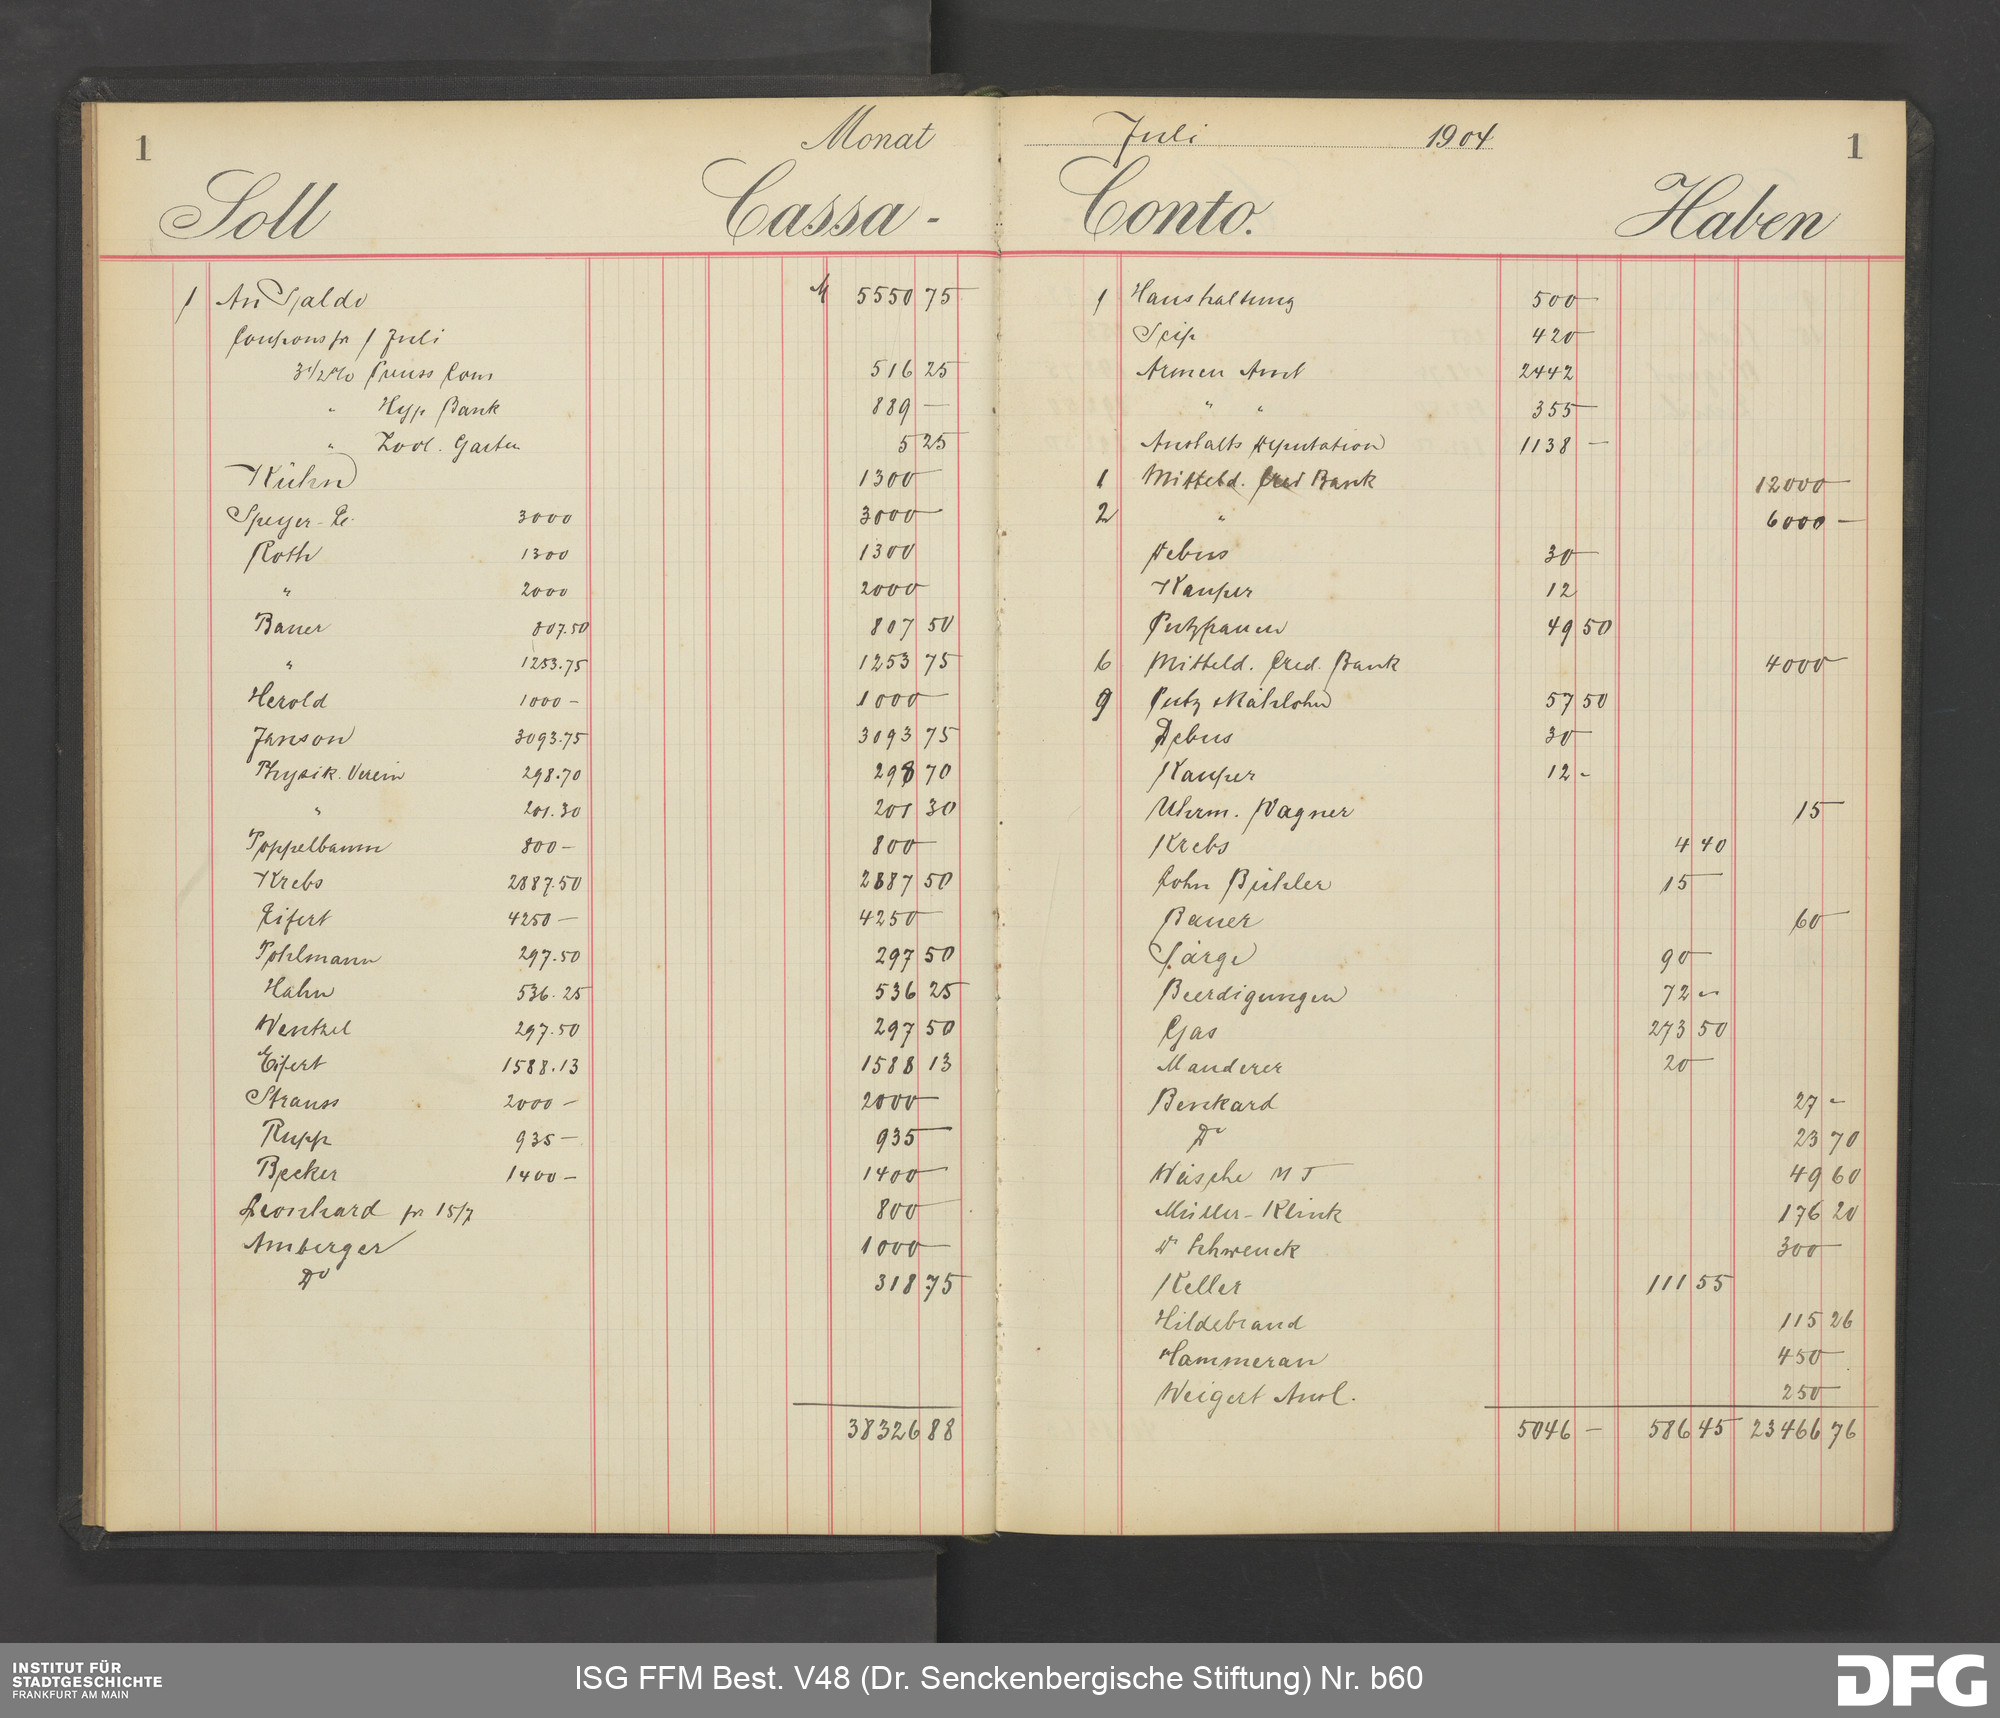 1 Monat
Soll Cassa-
1 An Saldo M 5550 75
Coupons pr 1 Juli
3 1/2 % Preuss Cons 516 25
" Hyp Bank 889 —
" Zool. Garten 5 25
Kühn 1300
Speyer-E. 3000 3000 —
Roth 1300 1300
" 2000 2000
Bauer 807.50 807 50
" 1253.75 1253 75
Herold 1000 – 1000 —
Janson 3093.75 3093 75
Physik. Verein 298.70 298 70
" 201.30 201 30
Poppelbaum 800 – 800 —
Krebs 2887.50 2887 50
Eifert 4250 – 4250 —
Pohlmann 297.50 297 50
Hahn 536.25 536 25
Wentzel 297.50 297 50
Eifert 1588.13 1588 13
Strauss 2000 – 2000 —
Rupp 935 – 935 —
Becker 1400 – 1400 —
Leonhard pr 15/7 800 —
Amberger 1000 —
Do 318 75
38326 88
Juli 1904 1
Conto. Haben
1 Haushaltung 500 —
Seip 420 —
Armen Amt 2442
" " 355 —
Anstalts Deputation 1138 —
1 Mitteld. Cred Bank 12000 —
2 " 6000 —
Debus 30 —
Kauper 12
Putzfrauen 49 50
6 Mitteld. Cred. Bank 4000 —
9 Putz Nählohn 57 50
Debus 30 —
Kauper 12 –
Uhrm. Wagner 15 —
Krebs 4 40
Cohn Bühler 15 —
Bauer 60 —
Särge 90 —
Beerdigungen 72 –
Gas 273 50
Manderer 20 —
Benkard 27 –
Do 23 70
Wäsche M J 49 60
Müller-Klink 176 20
Dr Schwenck 300 —
Keller 111 55
Hildebrand 115 26
Hammeran 450 —
Weigert Ausl. 250 —
5046 — 586 45 23466 76
INSTITUT FÜR
STADTGESCHICHTE
FRANKFURT AM MAIN
ISG FFM Best. V48 (Dr. Senckenbergische Stiftung) Nr. b60
DFG